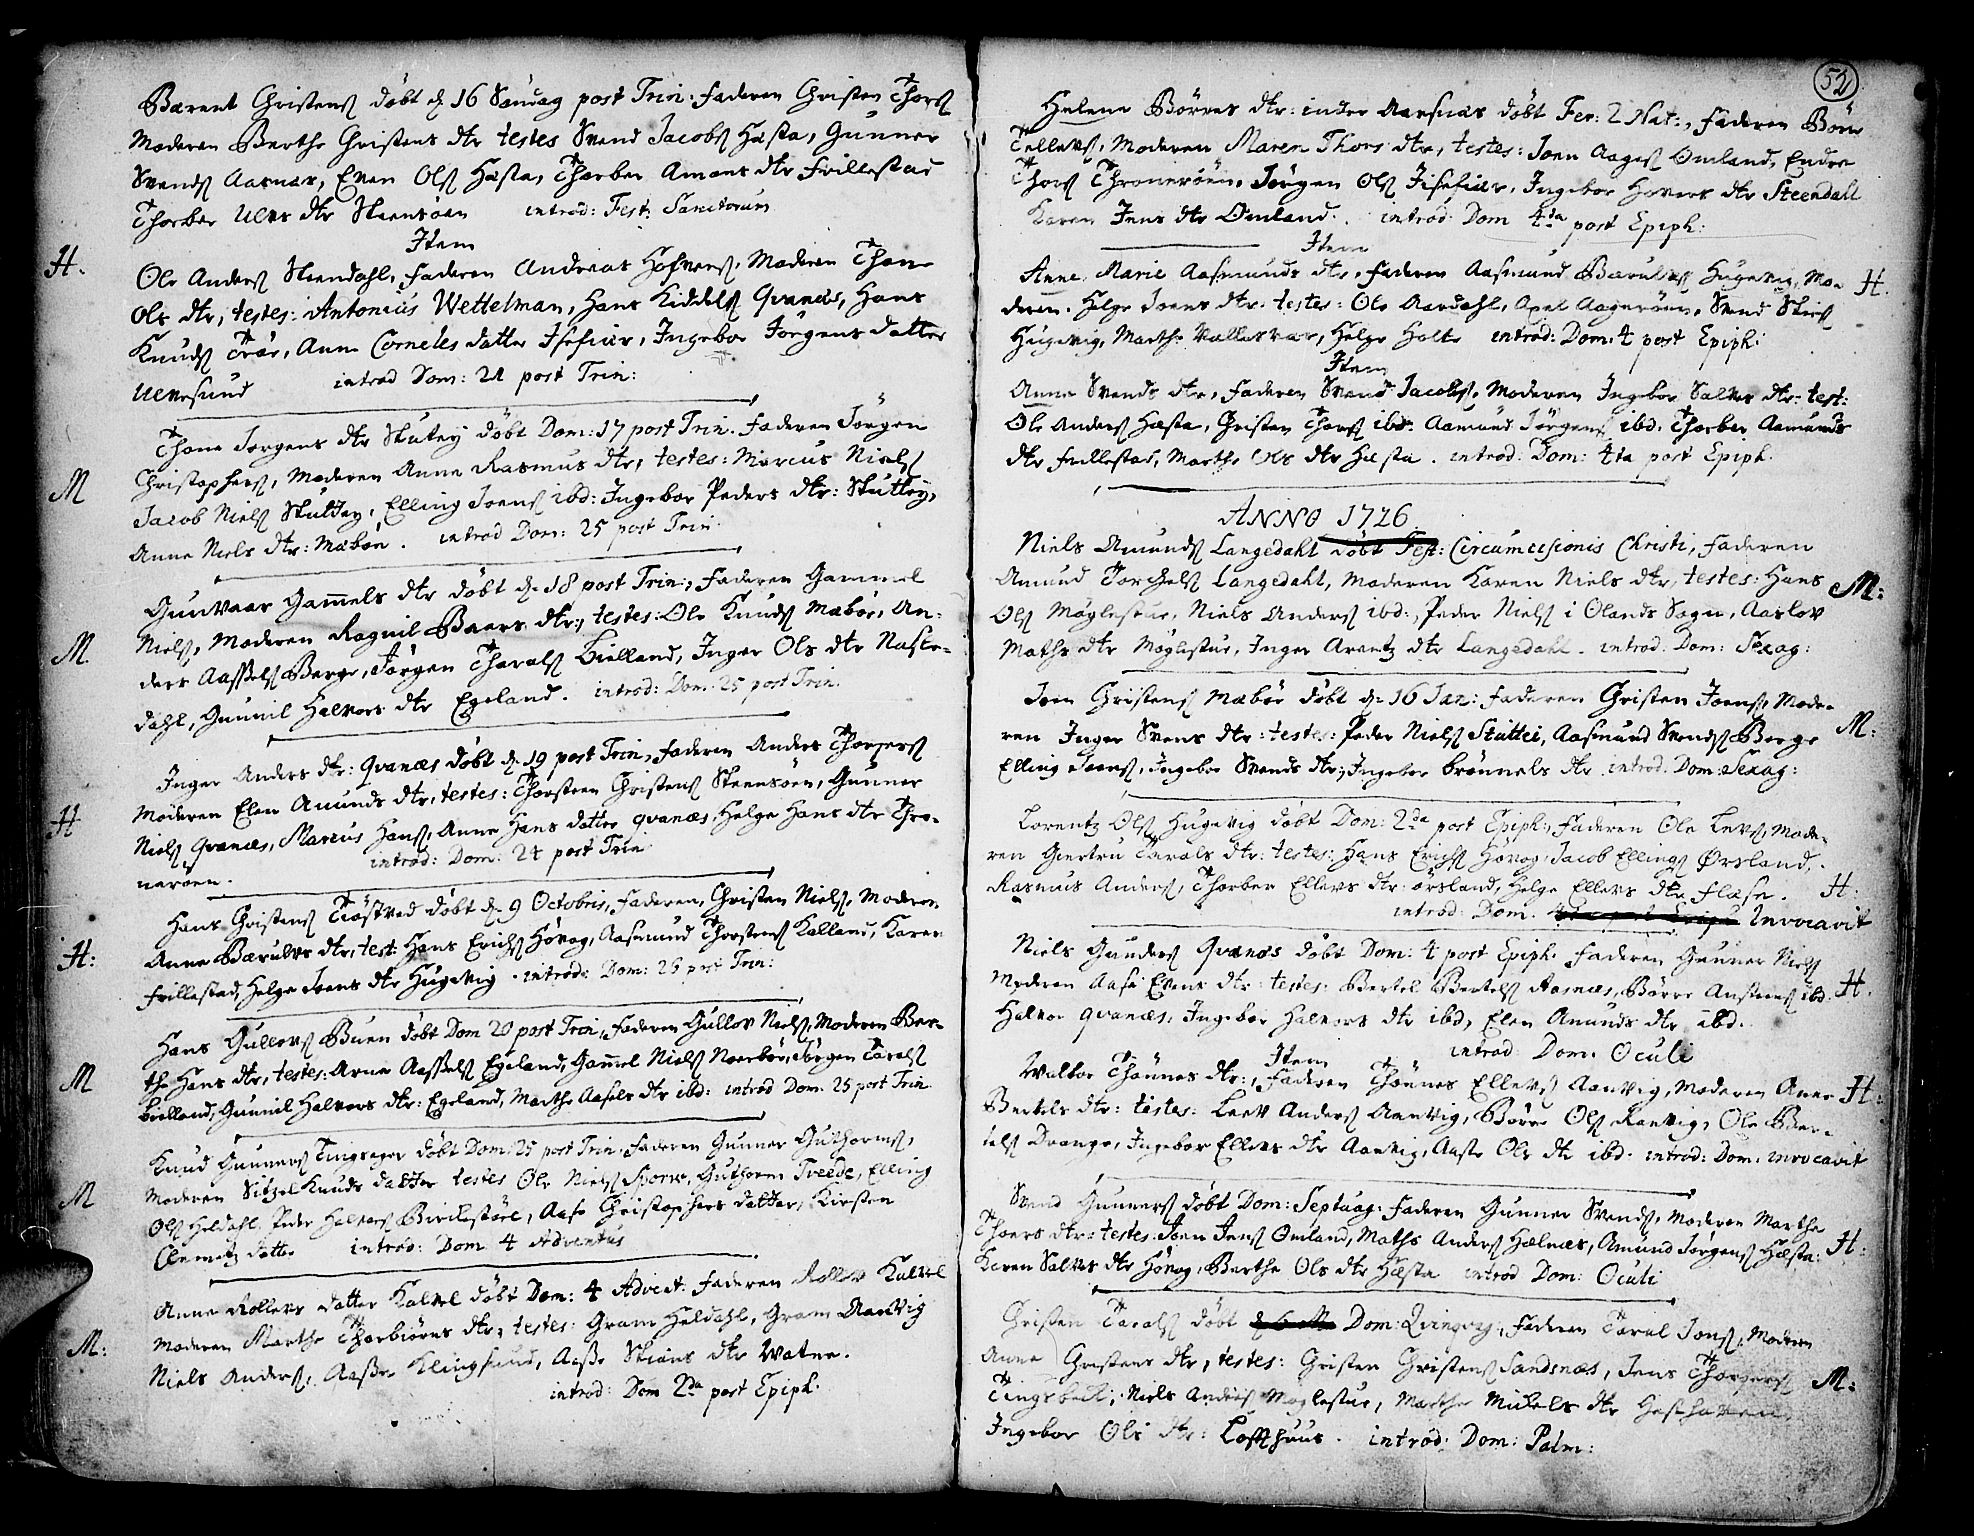 Bærent Christens døbt d. 16 Søndag post Trin: faderen Christen Thors
Moderen Berthe Christens dtr testes Svend Jacobs Hæsta, Gunner
Svends Aasnæs, Even Ols Hæsta, Thorber Amons dtr frillestad
Thorber Ulvs dtr Steensöen introd: Fest: Sanctorum
Item
H.
Ole Anders Steendahl, faderen Andreas Hofvers, Moderen Thone
Ols dtr, testes: Antonius Wettelman, Hans Kiddels Qvanæs, Hans
Knuds Trøe, Anne Corneles datter Isefiær, Ingebor Jørgens datter
Ulvøsund introd Dom: 21 post Trin:
Thone Jørgens dtr Skutey döbt Dom: 17 post Trin. faderen Jörgen
M
Christophers, Moderen Anne Rasmus dtr, testes: Marcus Niels
Jacob Niels Skuttey, Elling Joens ibd: Ingebor Peders dtr: Skuttey,
Anne Niels dtr: Mæbøe. introd Dom: 25 post Trin:
Gunvaar Gamels dtr döbt d. 18 post Trin:, faderen Gammel
M
Niels, Moderen Ragnil Baers dtr, testes: Ole Knuds Mæbøe, An-
ders Aassels Berge, Jørgen Tharals Bielland, Inger Ols dtr Naste-
dahl, Gunnil Halvors dtr Egeland. introd: Dom: 25 post Trin.
Inger Anders dtr: Qvanæs döbt d. 19 post Trin, faderen Anders Thorgers
H
Moderen Elen Amunds dtr, testes: Thorsteen Christens Steensöen, Gunner
Niels Qvanæs, Marcus Hans, Anne Hans datter Qvanæs, Helge Hans dtr Thro-
nerøen. introd: Dom: 24 post Trin
Hans Christens Tiøstved döbt d. 9 Octobris, faderen, Christen Niels, Moderen
H:
Anne Bærulvs dtr, test: Hans Erichs Høvog, Aasmund Thorstens Kalland, Karen
frillestad, Helge Joens dtr Hugevig. introd: Dom: 25 post Trin:
Hans Gullovs Buen döbt Dom 20 post Trin, faderen Gullov Niels, Moderen Ber-
M
the Hans dtr, testes: Arne Aassels Egeland, Gamel Niels Noerbøe, Jørgen Tarals
Bielland, Gunnil Halvors dtr: Egeland, Marthe Aasels dtr ibd: introd Dom: 25 post Trin
Knud Gunners Tingsager döbt Dom: 25 post Trin, faderen Gunner Guthorms,
M
Moderen Sitzel Knuds datter testes Ole Niels Guthorm Tveede, Elling
Ols Heldahl, Peder Halvors Birkestöel, Aase Christophers datter, Kirsten
Clemetz datter introd: Dom 4 Adventus
Anne Rollevs datter Kalvel döbt Dom: 4 Advent: faderen Rollev Kalvel
M:
Moderen Marthe Thorbiørns dtr, testes: Gram Heldahl, Gram Aanvig
Niels Anders, Aasse Klingsund, Aasse Skiøns dtr Watne.
introd: Dom 2da post Epiph:
52
Helene Börres dtr: inder Aasnæs döbt Fer: 2 Nat:, faderen Börre
Tellevs, Moderen Maren Thors dtr, testes: Joen Aages Omland, Endre
Thors Thronerøen, Jörgen Ols Jisefiær, Ingebor Hovers dtr Steendahl
Karen Jens dtr Omland. introd: Dom 4da post Epiph:
Item
Anne Marie Aasmunds dtr, faderen Aasmund Bærulvs Hugevig, Mo- H.
deren. Helge Joens dtr. testes: Ole Aardahl, Axel Aagerøen, Svend
Hugevig, Marthe Vallesvær, Helge Holte introd: Dom: 4 post Epiph:
Item
Anne Svends dtr, faderen Svend Jacobs, Moderen Ingebor Salves dtr: test:
Ole Anders Hæsta, Christen Thors ibd: Aamund Jörgens ibd. Thorber Aamunds
dtr frillestad, Marthe Ols dtr Hæsta. introd: Dom: 4ta post Epiph.
ANNO 1726
Niels Amunds Langedahl döbt Fest: Circumcisionis Christi, faderen
Amund Torchels Langedahl, Moderen Karen Niels dtr, testes: Hans M:
Ols Möglestue, Niels Anders ibd:, Peder Niels i Olands Sogn, Aaslov
Maths dtr Möglestue, Inger Arentz dtr Langedahl. introd: Dom: Sexag:
Joen Christens Mæbøe döbt d. 16 Jan: faderen Christen Joens, Mode-
ren Inger Svens dtr: testes: Peder Niels Skuttei, Aasmund Svends Berge M:
Elling Joens, Ingebor Svends dtr, Ingebor Brönnels dtr. introd. Dom: Sexag:
Lorentz Ols Hugevig döbt Dom: 2da post Epiph:, faderen Ole Levs, Mode-
ren Giertru Tarals dtr: testes: Hans Erichs Høvog, Jacob Ellings Ørsland,
Rasmus Anders, Thorber Ellevs dtr: örsland, Helge Ellevs dtr flase. H:
introd: Dom. Invocavit
Niels Gunders Qvanæs döbt Dom: 4 post Epiph. faderen Gunner Niels
Moderen Aase Evens dtr: testes: Bertel Bertels Aasnæs, Börre Anstens ibd. H.
Halvor Qvanæs, Ingebor Halvors dtr ibd, Elen Amunds dtr ibd.
introd: Dom. Oculi
Item
Walbor Thönnes dtr:, faderen Thönnes Ellevs Aanvig, Moderen Anne H:
Bertels dtr: testes: Leev Anders Aanvig, Börre Ols Ranvig, Ole Ber-
tels Drange, Ingebor Ellevs dtr Aanvig, Aaste Ole dtr ibd. introd: Dom: invocavit
Svend Gunners döbt Dom: Septuag: faderen Gunner Svends, Moderen Marthe
Thoers dtr: testes: Joen Jens Omland, Maths Anders Hælnæs, Amund Jørgens Hæsta: H:
Karen Salves dtr Høvog, Berthe Ols dtr Hæsta introd Dom: Oculi
Christen Tarals döbt Dom: Qvinqvag:, faderen Taral Jons, Moderen
Anne Christens dtr, testes: Christen Christens Sandsnæs, Jens Thorgers M:
Tingsbech, Niels Anders Möglestue, Marthe Mickels dtr Hesthaven
Ingebor Ols dtr: Lofthuus. introd: Dom: Palm: